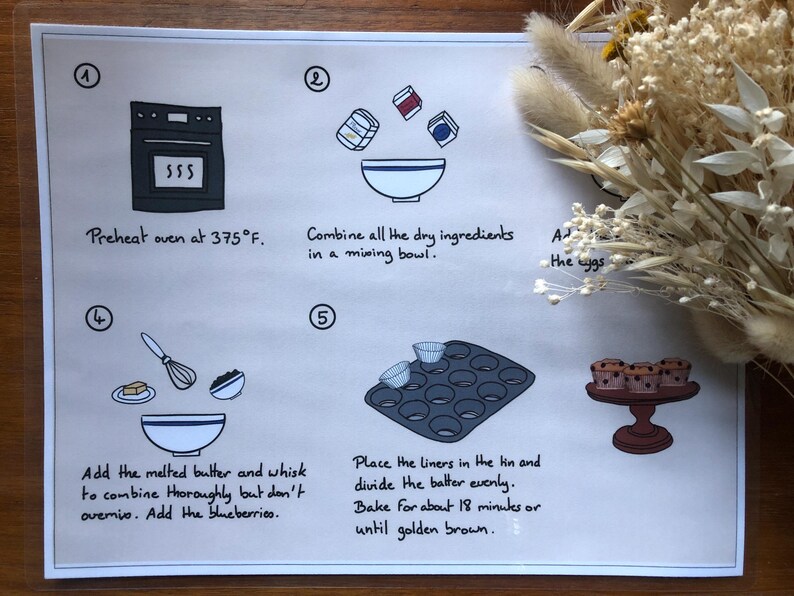 1
Preheat oven at 375°F.
2
Combine all the dry ingredients
in a mixing bowl.
the eggs
4
Add the melted butter and whisk
to combine thoroughly but don't
overmix. Add the blueberries.
5
Place the liners in the tin and
divide the batter evenly.
Bake for about 18 minutes or
until golden brown.